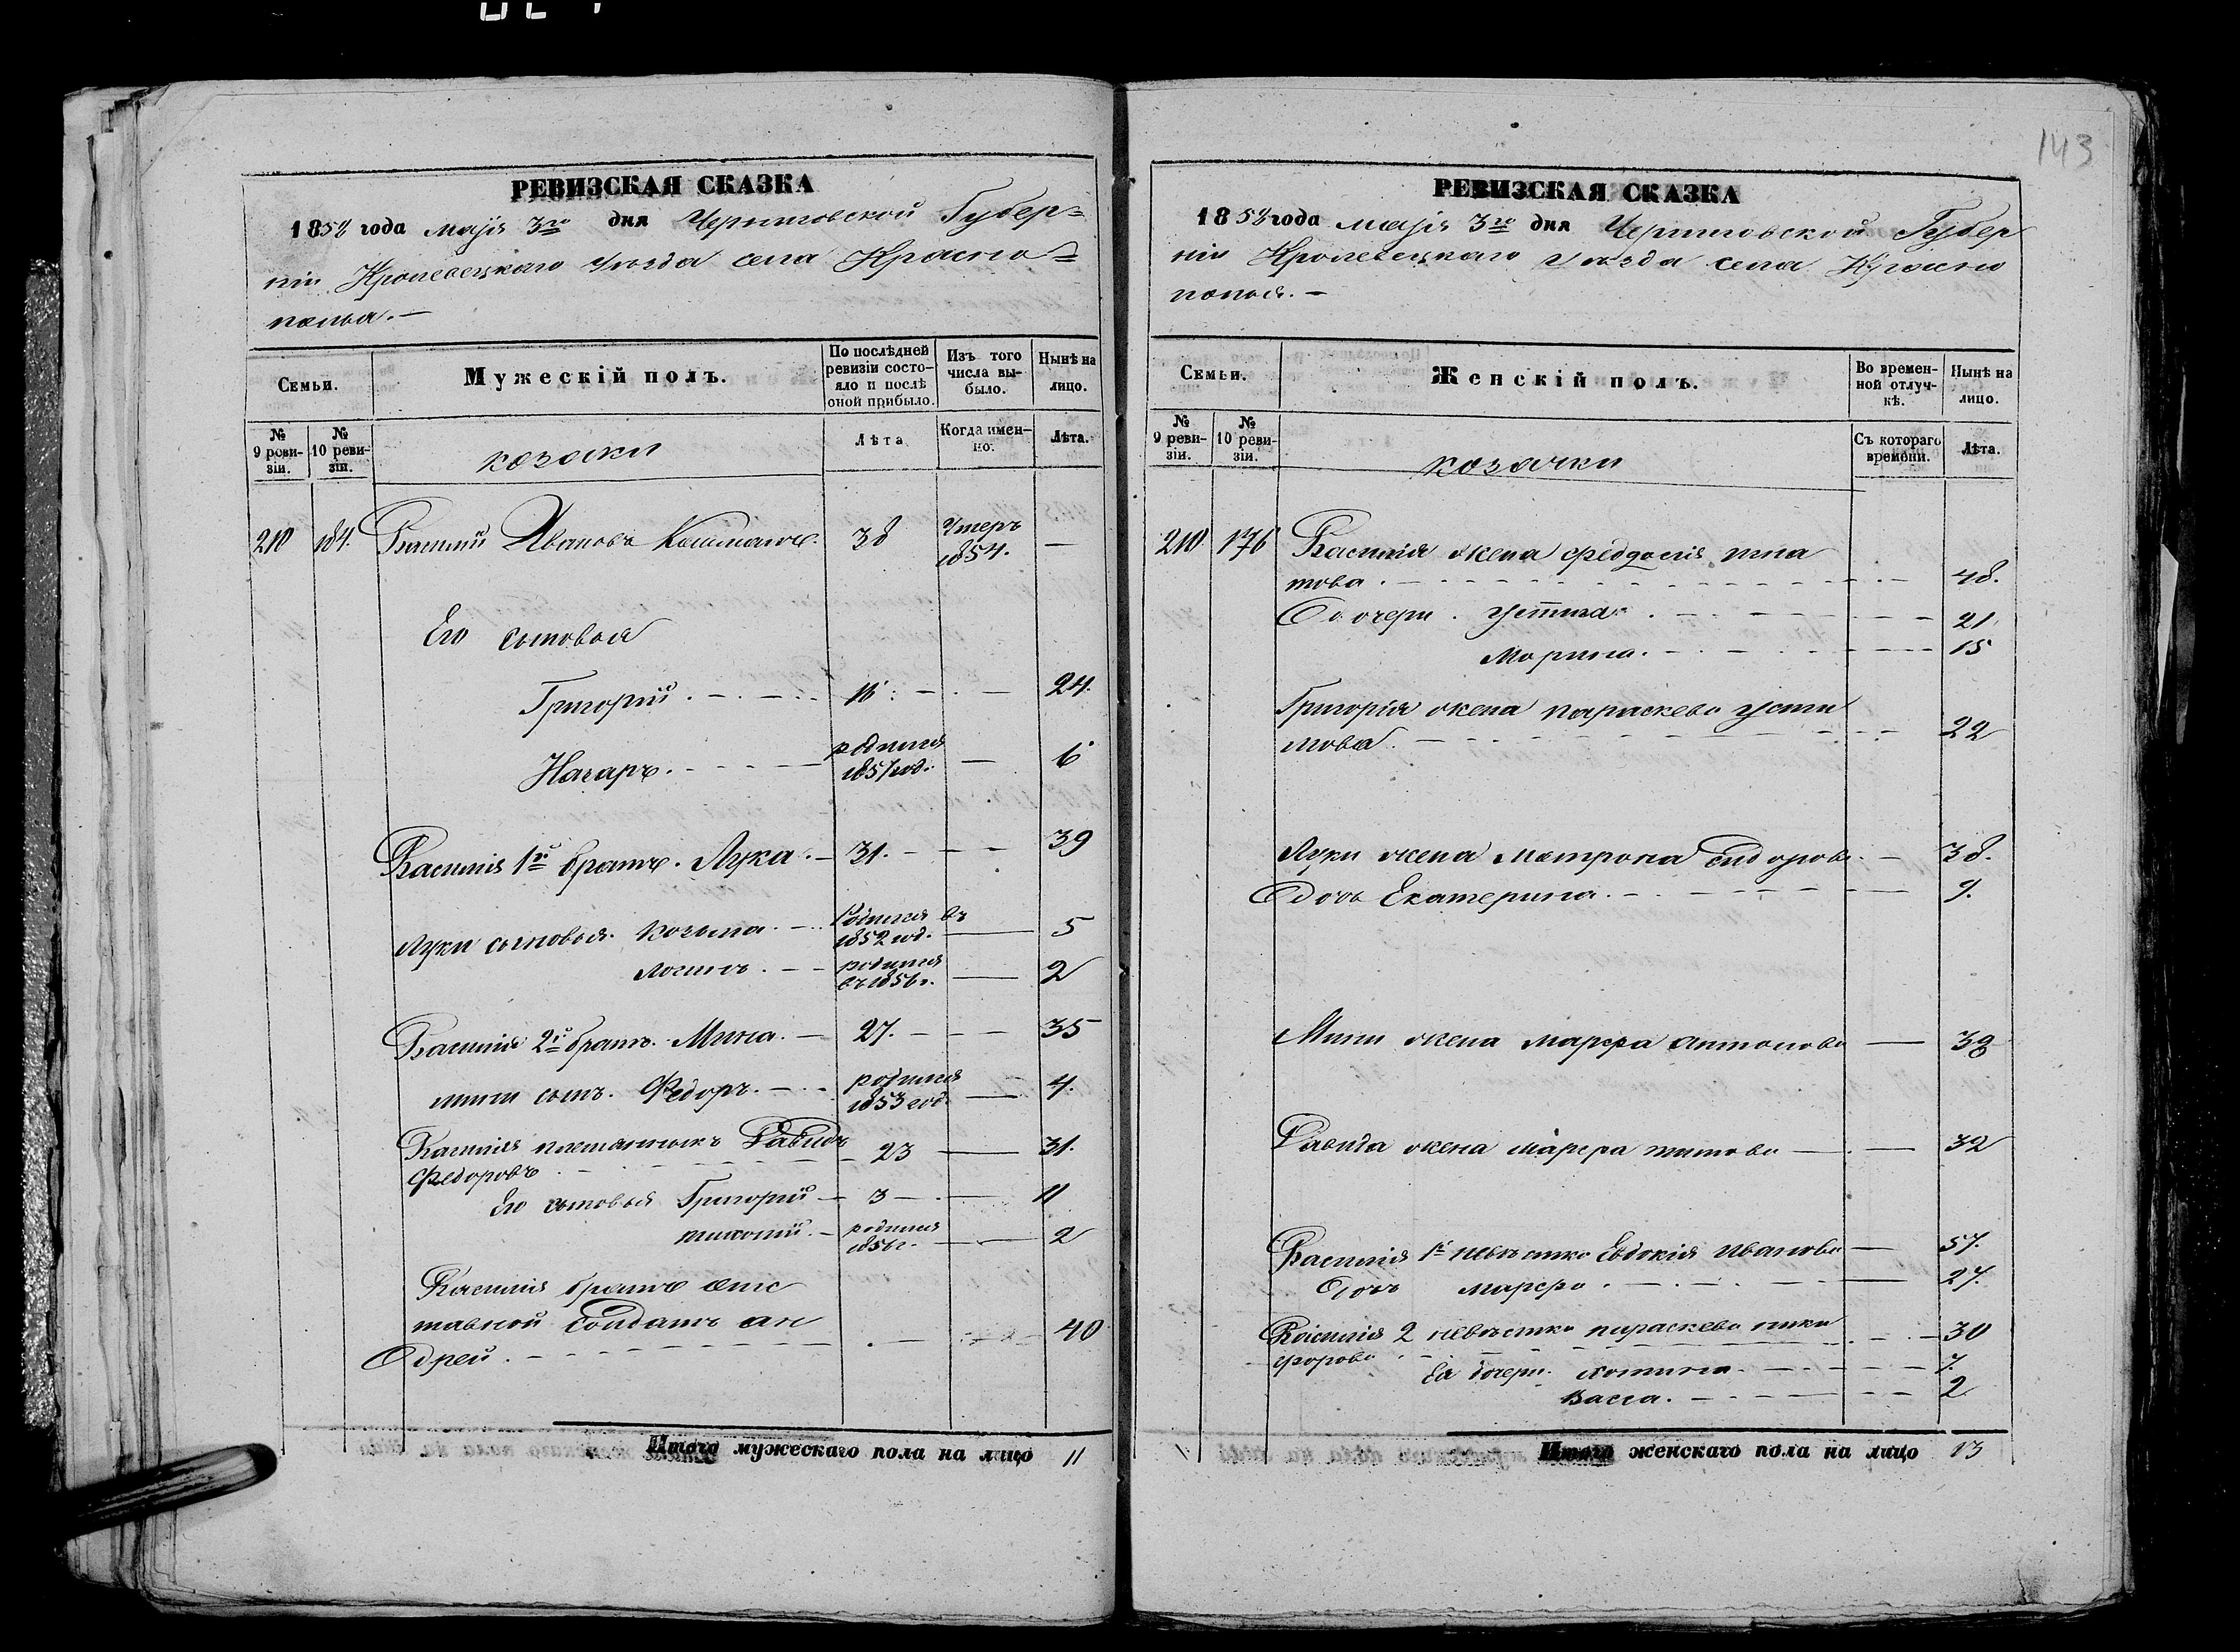 143
РЕВИЗСКАЯ СКАЗКА
1858 года маія 3го дня Черниговской Губер=
ніи Кролевецкаго уѣзда села Красно=
полья.
Семьи.
Мужескій полъ.
По послѣдней ревизіи состояло и послѣ оной прибыло.
Изъ того числа выбыло.
Нынѣ на лицо.
№ 9 ревизіи.
№ 10 ревизіи.
козаки
Лѣта
Когда именно.
Лѣта.
210 184. Василий Ивановъ 38 Умеръ 1854. —
Его сыновья
Григорий 16 24.
Назаръ. родился 1851 год. 6
Василія 1й братъ. Лука. 31. 39
Луки сыновья. Козьма. Родился въ 1852 год. 5
Логинъ. родился въ 1856 г. 2
Василія 2й братъ. Мина. 27. 35
мины сынъ. Федоръ. родился 1853 год. 4.
Василія племянникъ Давидъ 23 31.
Федоровъ
Его сыновья Григорий 3 11
родился 1856 г. 2
Василія братъ отс
тавной Солдатъ ан
дрей. 40
Итого мужескаго пола на лицо 11
РЕВИЗСКАЯ СКАЗКА
1858 года маія 3го дня Черниговской Губер
ніи Кролевецкаго уѣзда села Красно
полья.
Семьи.
Женскій полъ.
Во временной отлучкѣ.
Нынѣ на лицо.
№ 9 ревизіи.
№ 10 ревизіи.
козачки
Съ котораго времени.
Лѣта.
210 176 Василія жена феодосія игна
това. 48.
Дочери. Устинья. 21.
Марина. 15
Григорія жена параскева усти
нова. 22
Луки жена Матрона Сидорова. 38.
Дочь Екатерина. 9.
Мины жена марфа антонова 38
Давида жена марфа титова 32
Василія 1я невѣстка Евдокія иванова 57.
Дочь марфа. 27.
Василія 2 невѣстка параскева ники
форова 30
Ея дочери. 7.
Васса. 2
Итого женскаго пола на лицо 13